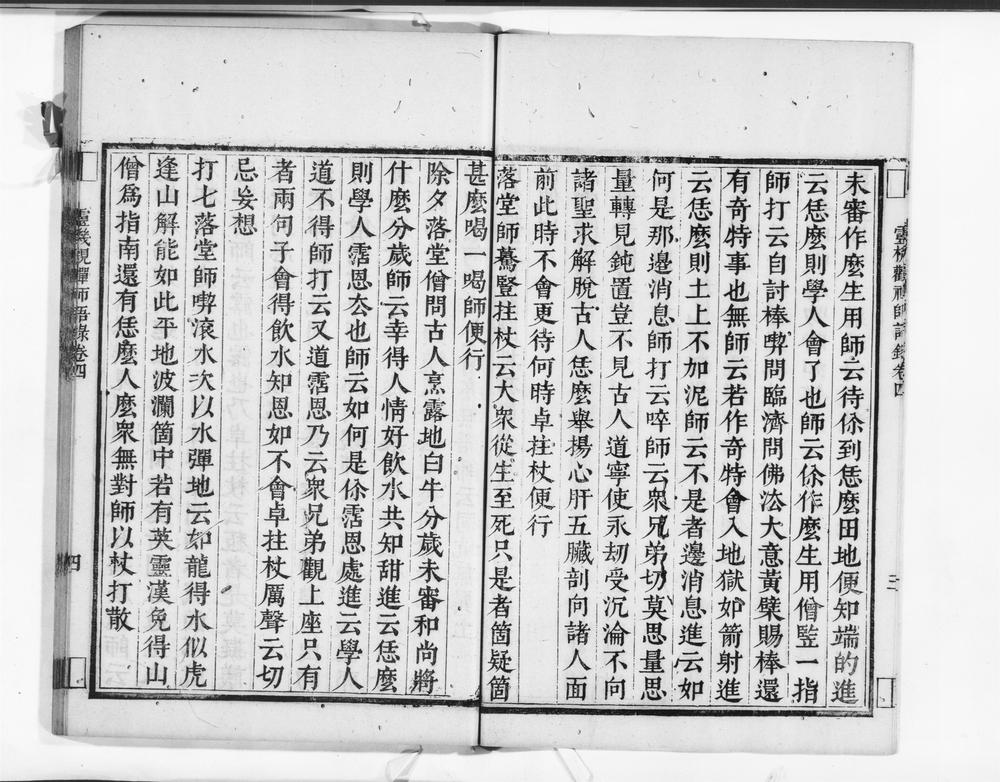 未審作麽生用師云待你到恁麽田地便知端的進
云恁麽則學人會了也師云你作麽生用僧竪一指
師打云自討棒喫問臨濟問佛法大意黃檗賜棒還
有奇特事也無師云若作奇特會入地獄如箭射進
云恁麽則土上不加泥師云不是者邊消息進云如
何是那邊消息師打云啐師云衆兄弟切莫思量思
量轉見鈍置豈不見古人道寧使永刼受沉淪不向
諸聖求解脫古人恁麽舉揚心肝五臟剖向諸人面
前此時不會更待何時卓拄杖便行
落堂師驀竪拄杖云大衆從生至死只是者箇疑箇
甚麽喝一喝師便行
除夕落堂僧問古人烹露地白牛分歲未審和尚將
什麽分歲師云幸得人情好飲水共知甜進云恁麽
則學人霑恩去也師云如何是你霑恩處進云學人
道不得師打云又道霑恩乃云衆兄弟觀上座只有
者兩句子會得飲水知恩如不會卓拄杖厲聲云切
忌妄想
打七落堂師喫滾水次以水彈地云如龍得水似虎
逢山解能如此平地波瀾箇中若有英靈漢免得山
僧爲指南還有恁麽人麽衆無對師以杖打散
四